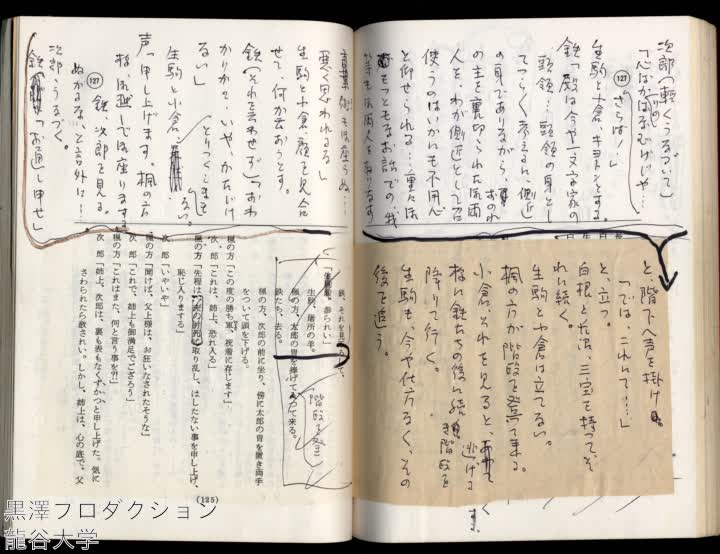 生駒と小倉、キョトンとする。
鉄「殿は今や一文字家の
頭領…頭領の身とし
てつらく考えるに、側近
の身でありながら、おのれ
の主を裏切られた両
人を、わが側近として召
使うのはいかにも不用心
と仰せられる…
と、階下へ声を掛け
「では、これにて…」
と、立つ。
白根と長沼、三宝を持ってそ
れに続く。
生駒と小倉は立てない。
楓の方が階段を登って来る。
小倉、それを見ると、あわてて
逃げる様に鉄たちの後に続き階段を
降りて行く。
生駒も、今や仕方なく、その
後を追う。
悪く思われるな」
生駒と小倉、顔を見合
せて、何か云おうとする。
鉄(それを云わせず)「おわ
かりか？…いや、かたじけ
ない」
生駒と小倉、
とりつくしまもない。
声「申し上げます。楓の方
様、お越しで御座ります」
127
鉄、次郎を見る。
ぬかるな、と言外に…
鉄「お通し申せ」
鉄、それを見
「生駒殿、参られい」
生駒、居所の羊。
鉄たち、去る。
階段を登
楓の方、太郎の冑を捧げて って来る。
楓の方、次郎の前に坐り、傍に太郎の冑を置き両手
をついて頭を下げる。
楓の方「この度の勝ち軍、祝着に存じます」
次 郎「これは、姉上、恐れ入る」
楓の方「先程は、夫の討死に取り乱し、はしたない事を申し上げ、
恥じ入りまする」
次 郎「いやいや」
楓の方「聞けば、父上様は、お狂いなされたそうな」
次 郎「これで、姉上も御満足でござろう」
楓の方「これはまた、何と言う事を?!」
次 郎「姉上、次郎は、裏も表もなくずかっと申し上げた。気に
さわられたら赦されい。しかし、姉上は、心の底で、父
(125)
黒澤プロダクション
龍谷大学